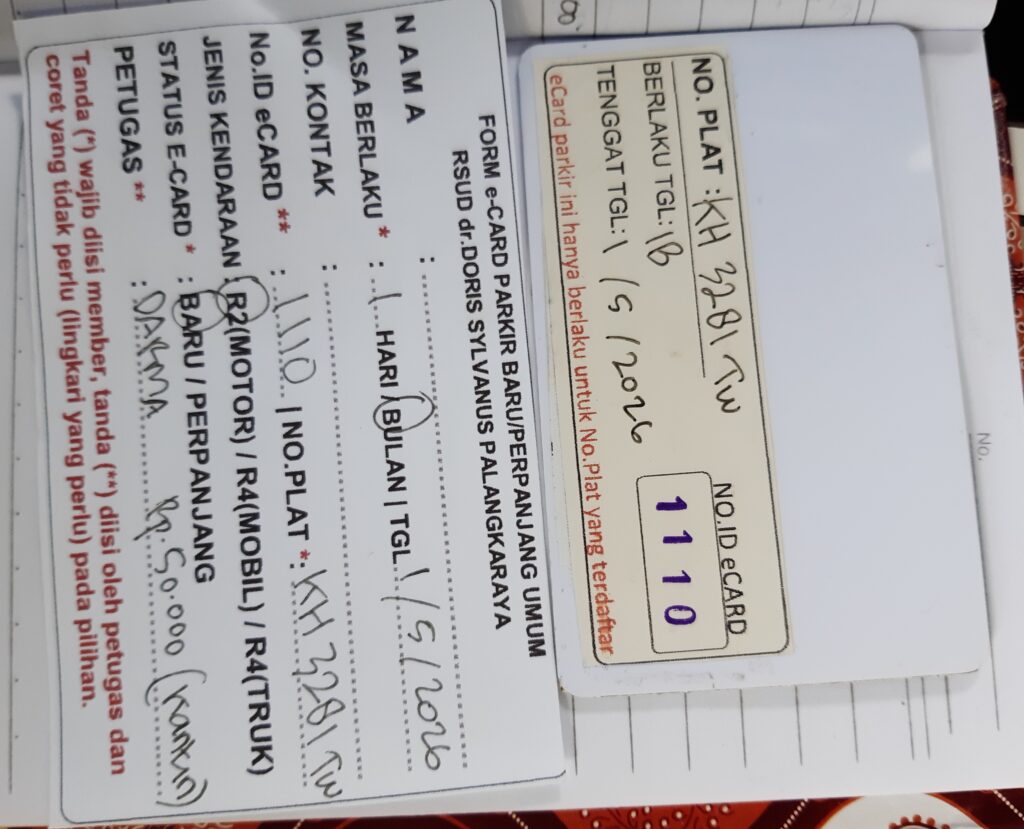 No.
NO. PLAT : KH 3281 TW
BERLAKU TGL: 1B
NO.ID eCARD
TENGGAT TGL: 1 / 5 / 2026
1110
eCard parkir ini hanya berlaku untuk No.Plat yang terdaftar
FORM e-CARD PARKIR BARU/PERPANJANG UMUM
RSUD dr.DORIS SYLVANUS PALANGKARAYA
N A M A :
MASA BERLAKU * : 1 HARI / BULAN | TGL 1 / 5 / 2026
NO. KONTAK :
No.ID eCARD ** : 1110 | NO.PLAT *: KH 3281 TW
JENIS KENDARAAN : R2(MOTOR) / R4(MOBIL) / R4(TRUK)
STATUS E-CARD * : BARU / PERPANJANG
PETUGAS ** : DARMA Rp. 50.000 (Kantin)
Tanda (*) wajib diisi member, tanda (**) diisi oleh petugas dan
coret yang tidak perlu (lingkari yang perlu) pada pilihan.